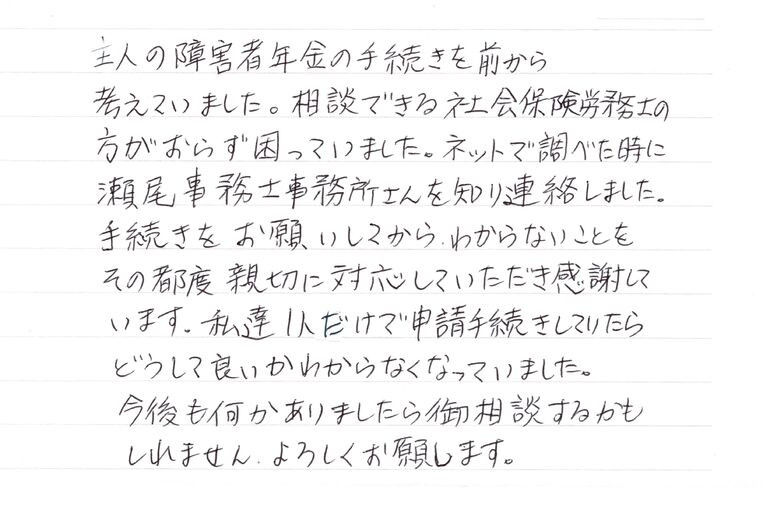 主人の障害者年金の手続きを前から
考えていました。相談できる社会保険労務士の
方がおらず困っていました。ネットで調べた時に
瀬尾事務士事務所さんを知り連絡しました。
手続きをお願いしてから、わからないことを
その都度親切に対応していただき感謝して
います。私達1人だけで申請手続きしていたら
どうして良いかわからなくなっていました。
今後も何かありましたら御相談するかも
しれません、よろしくお願します。